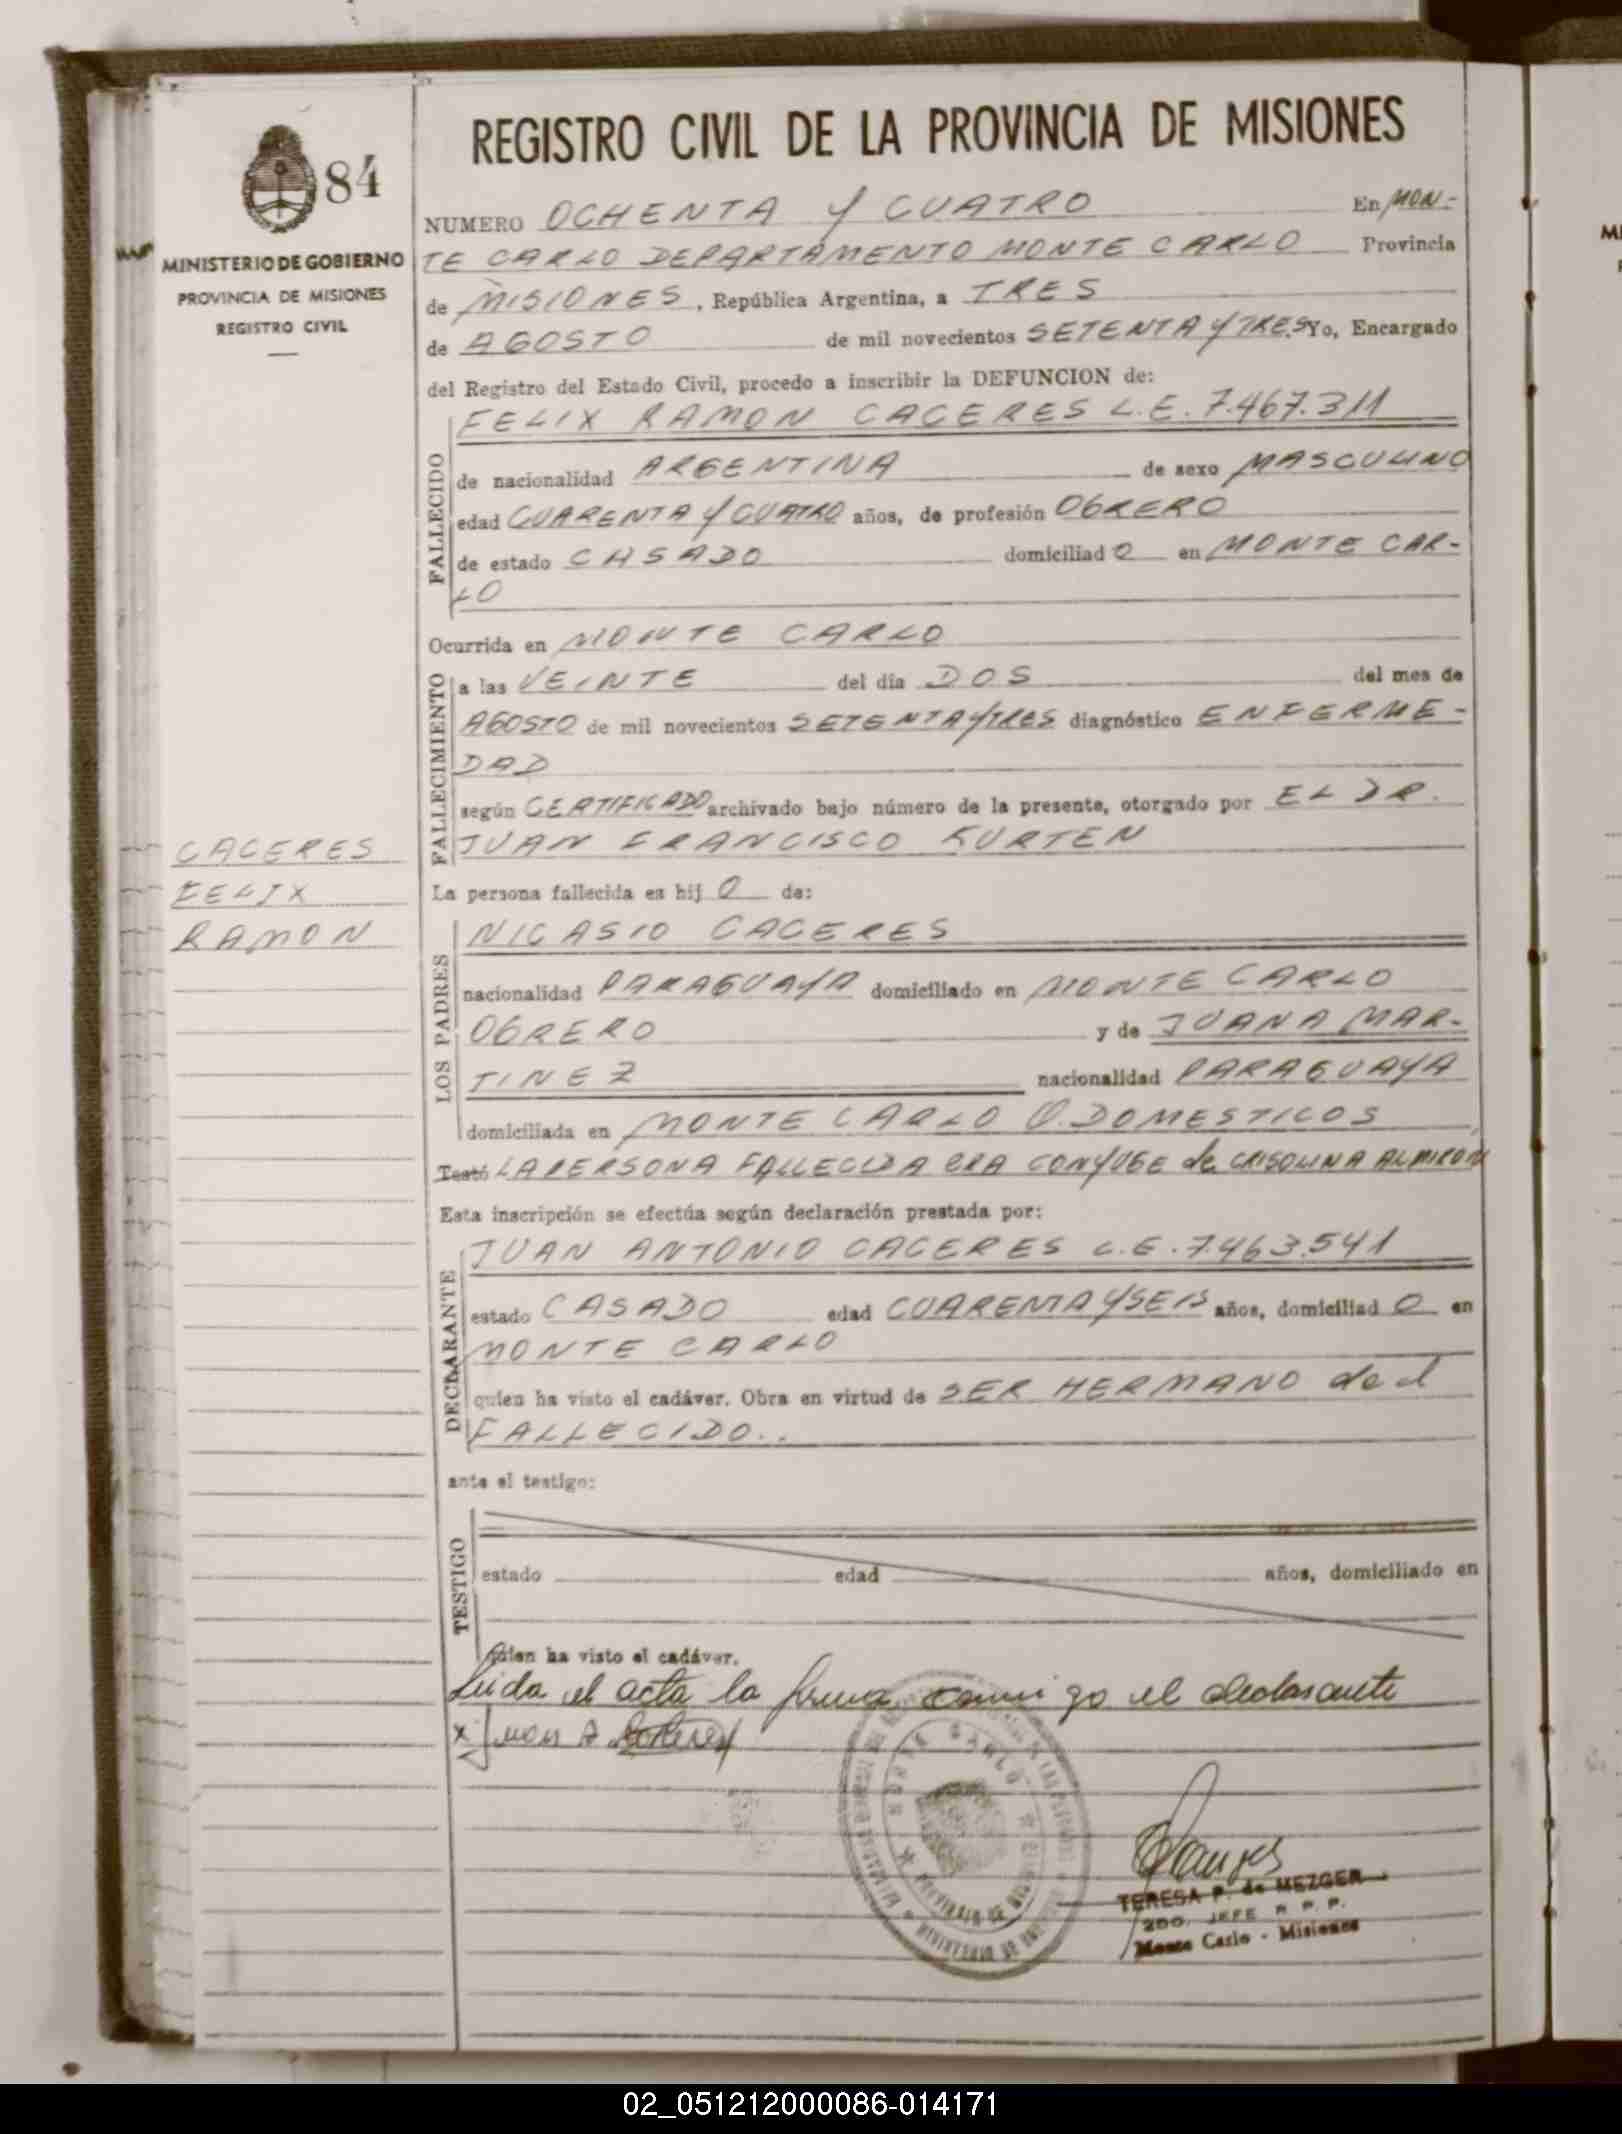 REGISTRO CIVIL DE LA PROVINCIA DE MISIONES
84
MINISTERIO DE GOBIERNO
PROVINCIA DE MISIONES
REGISTRO CIVIL
NUMERO OCHENTA Y CUATRO En MON-
TE CARLO DEPARTAMENTO MONTE CARLO Provincia
de MISIONES, República Argentina, a TRES
de AGOSTO de mil novecientos SETENTA Y TRES Yo, Encargado
del Registro del Estado Civil, procedo a inscribir la DEFUNCION de:
FALLECIDO
FELIX RAMON CACERES L.E. 7.467.311
de nacionalidad ARGENTINA de sexo MASCULINO
edad CUARENTA Y CUATRO años, de profesión OBRERO
de estado CASADO domiciliad O en MONTE CAR-
LO
Ocurrida en MONTE CARLO
FALLECIMIENTO
a las VEINTE del día DOS del mes de
AGOSTO de mil novecientos SETENTA Y TRES diagnóstico ENFERME-
DAD
según CERTIFICADO archivado bajo número de la presente, otorgado por EL DR.
JUAN FRANCISCO KURTEN
CACERES
FELIX
RAMON
La persona fallecida es hij O de:
LOS PADRES
NICASIO CACERES
nacionalidad PARAGUAYA domiciliado en MONTE CARLO
OBRERO y de JUANA MAR-
TINEZ nacionalidad PARAGUAYA
domiciliada en MONTE CARLO Q. DOMESTICOS
Testó LA PERSONA FALLECIDA ERA CONYUGE de CRISOLINA ALMIRON
Esta inscripción se efectúa según declaración prestada por:
DECLARANTE
JUAN ANTONIO CACERES L.E. 7.463.541
estado CASADO edad CUARENTA Y SEIS años, domiciliad O en
MONTE CARLO
quien ha visto el cadáver. Obra en virtud de SER HERMANO del
FALLECIDO..
ante el testigo:
TESTIGO
estado edad años, domiciliado en
quien ha visto el cadáver.
Leida el acta la firma conmigo el declarante
x Juan A Caceres
MONTE CARLO
TERESA P. de MEZGER
2DO. JEFE R. P. P.
Monte Carlo - Misiones
02_051212000086-014171